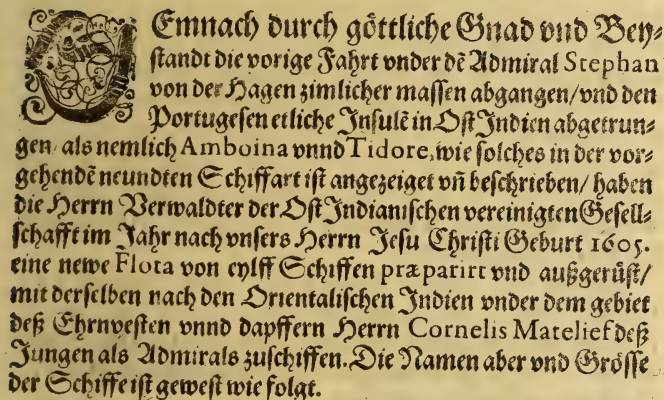 DEmnach durch göttliche Gnad vnd Bey⸗
standt die vorige Fahrt vnder dē Admiral Stephan
von der Hagen zimlicher massen abgangen/vnd den
Portugesen etliche Insulē in Ost Indien abgetrun⸗
gen/als nemlich Amboina vnnd Tidore, wie solches in der vor⸗
gehendē neundten Schiffart ist angezeiget vñ beschrieben/haben
die Herrn Verwaldter der Ost Indianischen vereinigten Gesell⸗
schafft im Jahr nach vnsers Herrn Jesu Christi Geburt 1605.
eine newe Flota von eylff Schiffen præparirt vnd außgerüst/
mit derselben nach den Orientalischen Indien vnder dem gebiet
deß Ehrnvesten vnnd dapffern Herrn Cornelis Matelief deß
Jungen als Admirals zuschiffen. Die Namen aber vnd Grösse
der Schiffe ist gewest wie folgt.